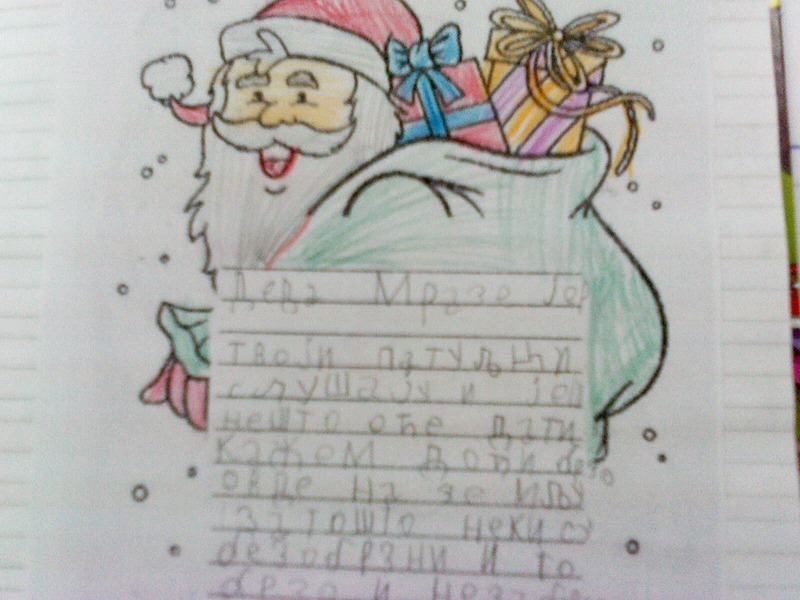 Деда Мразе јел
твоји патуљци
слушају и јел
нешто оће дати
Кажем дођи бе
овде на зе
заτошто неки су
безобрзни и то
брзо и